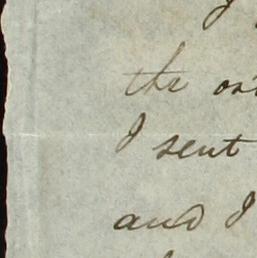 the
I sent
and I